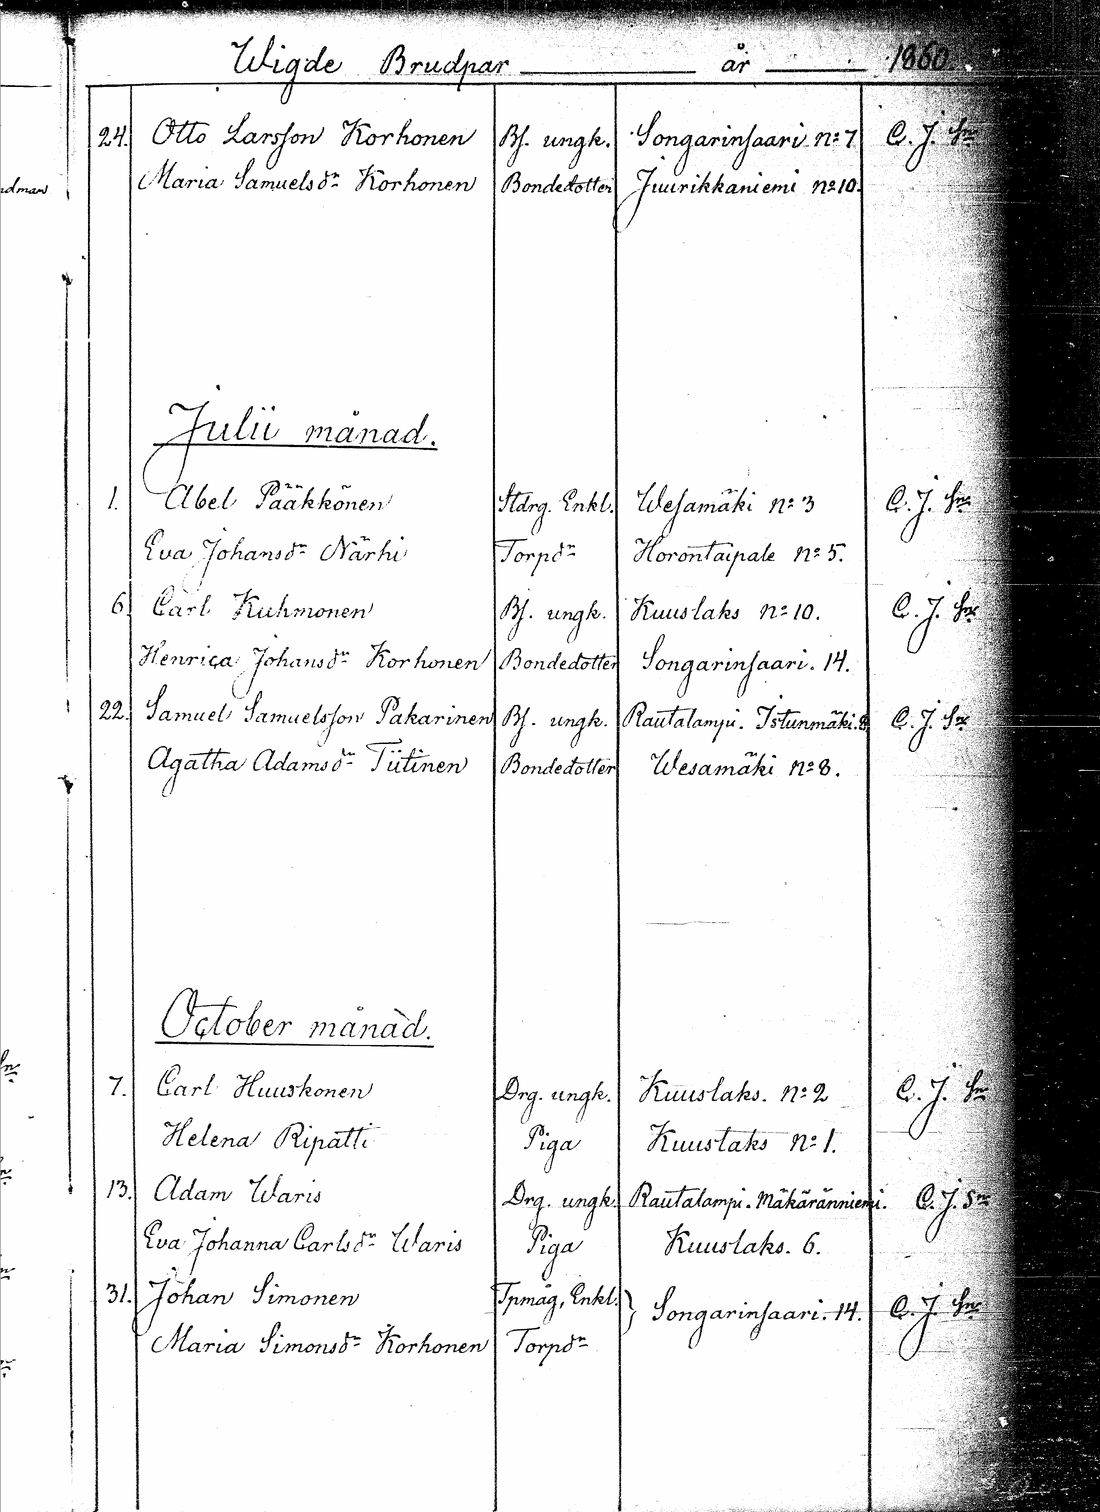 Wigde Brudpar år 1860.
24. Otto Larsson Korhonen Bs. ungk. Songarinsaari no 7 C. J. Sn
Maria Samuelsdr Korhonen Bondedotter Juurikkaniemi no 10.
Julii månad.
1. Abel Pääkkönen Stdrg. Enkl. Wesamäki no 3 C. J. Sn
Eva Johansdr Närhi Torpdr Horontaipale no 5.
6. Carl Kuhmonen Bs. ungk. Kuuslaks no 10. C. J. Sn
Henrica Johansdr Korhonen Bondedotter Songarinsaari. 14.
22. Samuel Samuelsson Pakarinen Bs. ungk. Rautalampi. Istunmäki. 8 C. J. Sn
Agatha Adamsdr Tiitinen Bondedotter Wesamäki no 8.
October månad.
7. Carl Huuskonen Drg. ungk. Kuuslaks. no 2 C. J. Sn
Helena Ripatti Piga Kuuslaks no 1.
13. Adam Waris Drg. ungk. Rautalampi. Mäkäränniemi. C. J. Sn
Eva Johanna Carlsdr Waris Piga Kuuslaks. 6.
31. Johan Simonen Tpmåg, Enkl. } Songarinsaari. 14. C. J. Sn
Maria Simonsdr Korhonen Torpdr